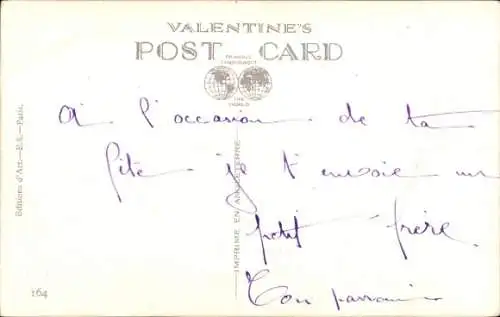 VALENTINE'S
POST CARD
FAMOUS
THROUGHOUT
THE
WORLD
A l'occasion de ta
fête je t'envoie un
petit frère.
Ton parrain
Editions d'Art.—E.S.—Paris.
IMPRIMÉ EN ANGLETERRE
164